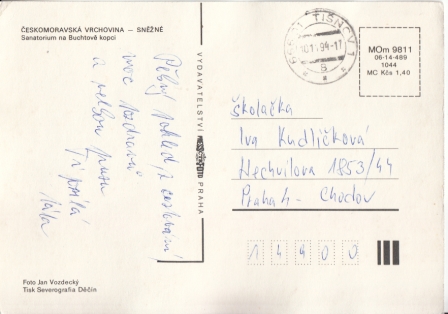 ČESKOMORAVSKÁ VRCHOVINA — SNĚŽNÉ
Sanatorium na Buchtově kopci
Pěkný pohled z cestování,
moc pozdravů
a velkou pusu
Ti posílá
táta
Foto Jan Vozdecký
Tisk Severografia Děčín
VYDAVATELSTVÍ
PRAHA
TIŠNOV 1
94-17
MOm 9811
06-14-489
1044
MC Kčs 1,40
Školačka
Iva Kudličková
Hechvilova 1853/44
Praha 4 - Chodov
14900